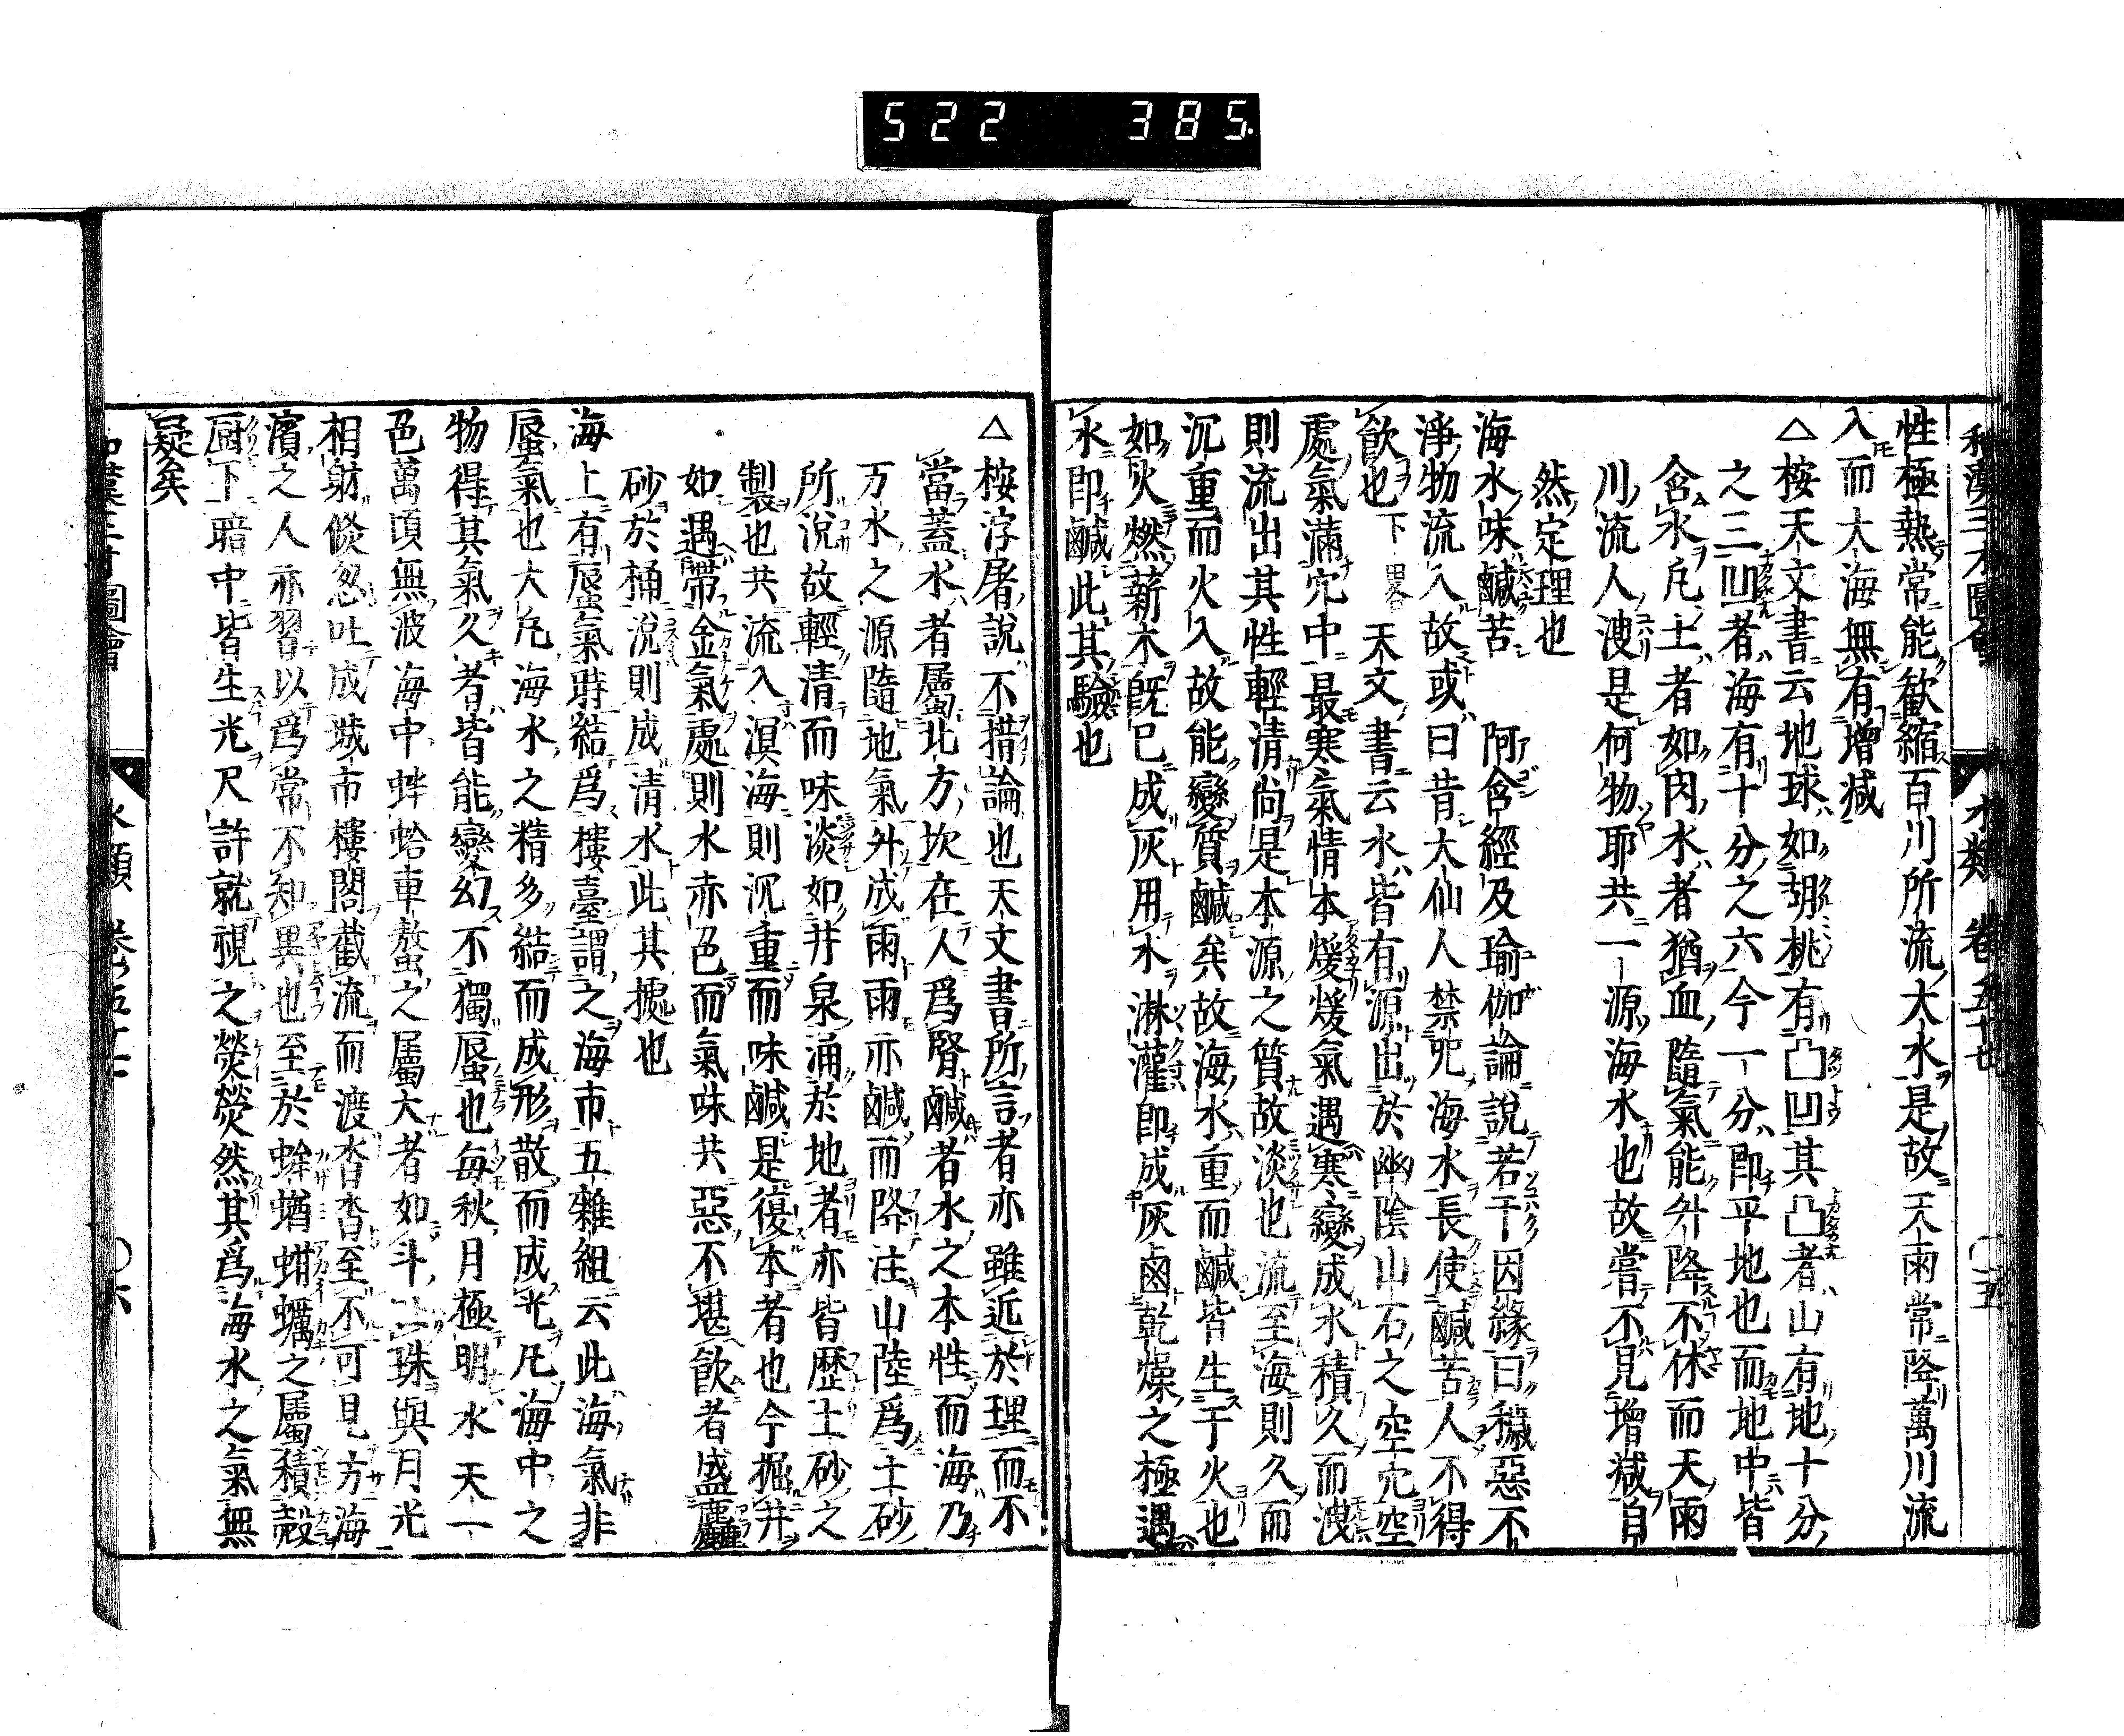 522 385.
和漢三才圖會 水類 卷五十七 〇五
性極熱常能歙縮百川所流大水是故天雨常降萬川流
入而大海無有增減
△桉天文書云地球如胡桃有凸凹其凸者山有地十分
之三凹者海有十分之六今一分即平地也而地中皆
含水凡土者如肉水者猶血隨氣能升降不休而天雨
川流人洩是何物耶共一源海水也故嘗不見增減自
然定理也
海水味鹹苦 阿含經及瑜伽論說若干因緣曰穢惡不
淨物流入故或曰昔大仙人禁咒海水長使鹹苦人不得
飲也下略 天文書云水皆有源出於幽陰山石之空穴空
處氣滿穴中最寒氣情本煖煖氣遇寒變成水積久而洩
則流出其性輕清尚是本源之質故淡也流至海則久而
沉重而火入故能變質鹹矣故海水重而鹹皆生于火也
如火燃薪木既已成灰用水淋灌即成灰鹵乾燥之極遇
水即鹹此其驗也
△桉浮屠說不措論也天文書所言者亦雖近於理而不
當蓋水者屬北方坎在人爲腎鹹者水之本性而海乃
万水之源隨地氣外成雨雨亦鹹而降注山陸爲土砂
所說故輕清而味淡如井泉涌於地者亦皆歷土砂之
製也共流入溟海則沉重而味鹹是復本者也今掘井
如遇帶金氣處則水赤色而氣味共惡不堪飲者盛麤
砂於桶說則成清水此其據也
海上有蜃氣時結爲樓臺謂之海市五雜組云此海氣非
蜃氣也大凡海水之精多結而成形散而成光凡海中之
物得其氣久者皆能變幻不獨蜃也毎秋月極明水天一
色萬頃無波海中蚌蛤車螯之屬大者如斗吐珠與月光
相射倏忽吐成城市樓閣截流而渡杳杳至不可見方海
濱之人亦習以爲常不知異也至於蛑蝤蚶蠣之屬積殼
厨下暗中皆生光尺許就視之熒熒然其爲海水之氣無
疑矣
和漢三才圖會 水類 卷五十七 〇六